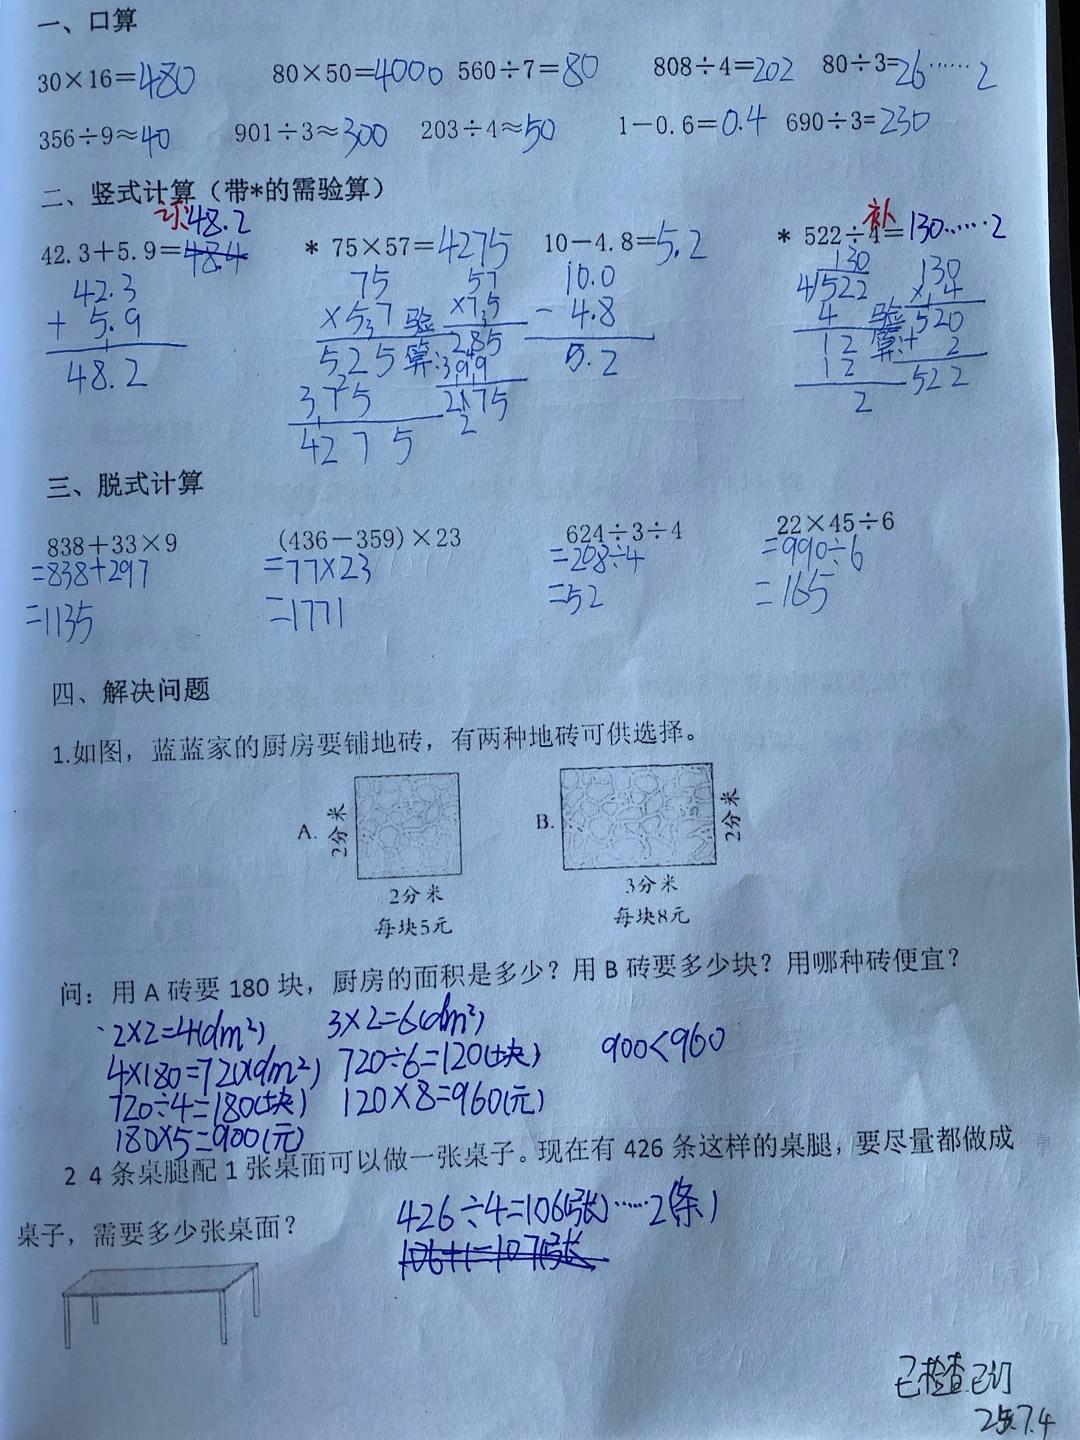 一、口算
30×16=480 80×50=4000 560÷7=80 808÷4=202 80÷3=26……2
356÷9≈40 901÷3≈300 203÷4≈50 1-0.6=0.4 690÷3=230
二、竖式计算（带*的需验算）
48.2 补
42.3+5.9=48.4 * 75×57=4275 10-4.8=5.2 * 522÷4=130……2
42.3 75 57 10.0 130 130
+ 5.9 ×57 验 ×75 - 4.8 4√522 验 ×4
48.2 525 算: 285 5.2 4 算: 520
375 399 12 + 2
4275 12 522
2
三、脱式计算
838+33×9 (436-359)×23 624÷3÷4 22×45÷6
=838+297 =77×23 =208÷4 =990÷6
=1135 =1771 =52 =165
四、解决问题
1.如图，蓝蓝家的厨房要铺地砖，有两种地砖可供选择。
A. 2分米 B. 2分米
2分米 3分米
每块5元 每块8元
问：用 A 砖要 180 块，厨房的面积是多少？用 B 砖要多少块？用哪种砖便宜？
2×2=4(dm²) 3×2=6(dm²)
4×180=720(dm²) 720÷6=120(块) 900<960
720÷4=180(块) 120×8=960(元)
180×5=900(元)
2 4 条桌腿配 1 张桌面可以做一张桌子。现在有 426 条这样的桌腿，要尽量都做成
桌子，需要多少张桌面？
426÷4=106(张)……2(条)
106+1=107(张)
已检查已订
25.7.4